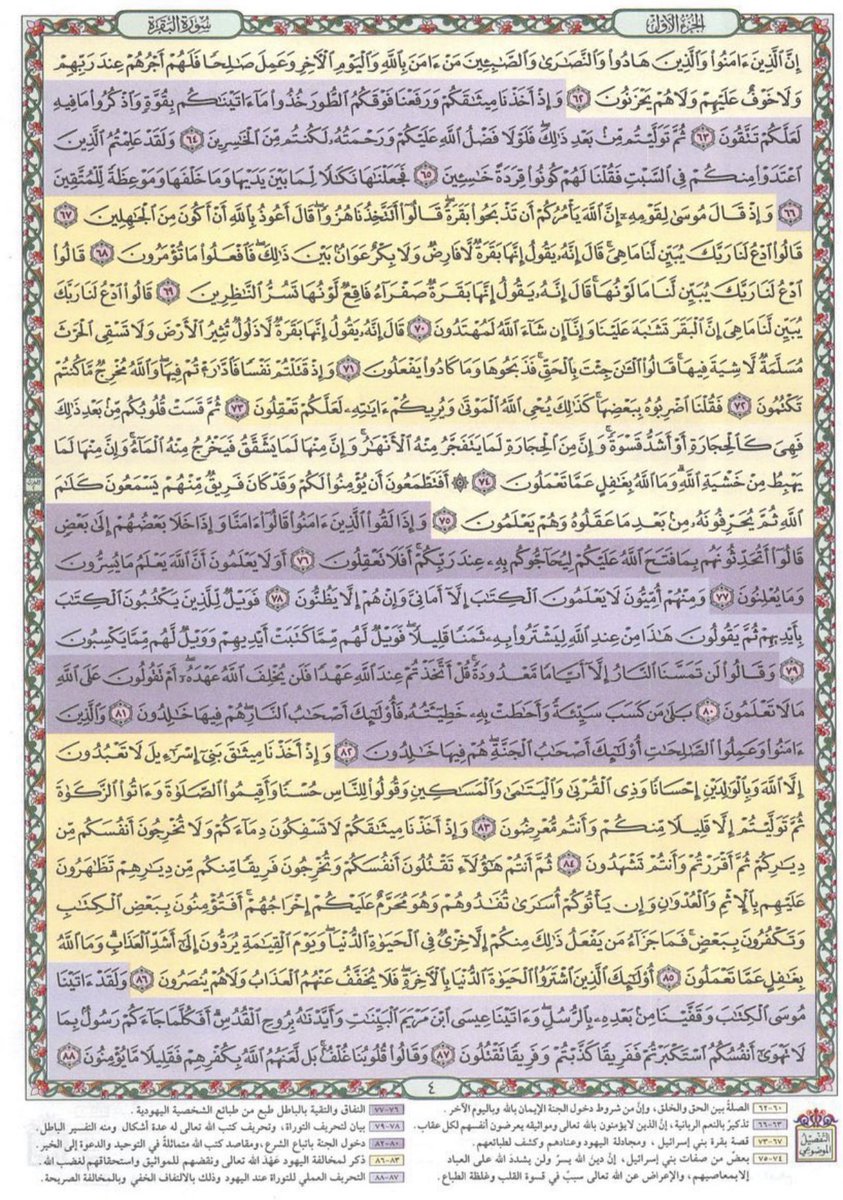 الجزء الأول
سورة البقرة
إِنَّ الَّذِينَ ءَامَنُوا وَالَّذِينَ هَادُوا وَالنَّصَارَى وَالصَّابِئِينَ مَنْ ءَامَنَ بِاللَّهِ وَالْيَوْمِ الْآخِرِ وَعَمِلَ صَالِحًا فَلَهُمْ أَجْرُهُمْ عِندَ رَبِّهِمْ
وَلَا خَوْفٌ عَلَيْهِمْ وَلَا هُمْ يَحْزَنُونَ ٦٢ وَإِذْ أَخَذْنَا مِيثَاقَكُمْ وَرَفَعْنَا فَوْقَكُمُ الطُّورَ خُذُوا مَا ءَاتَيْنَاكُم بِقُوَّةٍ وَاذْكُرُوا مَا فِيهِ
لَعَلَّكُمْ تَتَّقُونَ ٦٣ ثُمَّ تَوَلَّيْتُم مِّنْ بَعْدِ ذَلِكَ فَلَوْلَا فَضْلُ اللَّهِ عَلَيْكُمْ وَرَحْمَتُهُ لَكُنتُم مِّنَ الْخَاسِرِينَ ٦٤ وَلَقَدْ عَلِمْتُمُ الَّذِينَ
اعْتَدَوْا مِنكُمْ فِي السَّبْتِ فَقُلْنَا لَهُمْ كُونُوا قِرَدَةً خَاسِئِينَ ٦٥ فَجَعَلْنَاهَا نَكَالًا لِّمَا بَيْنَ يَدَيْهَا وَمَا خَلْفَهَا وَمَوْعِظَةً لِّلْمُتَّقِينَ
٦٦ وَإِذْ قَالَ مُوسَى لِقَوْمِهِ إِنَّ اللَّهَ يَأْمُرُكُمْ أَن تَذْبَحُوا بَقَرَةً قَالُوا أَتَتَّخِذُنَا هُزُوًا قَالَ أَعُوذُ بِاللَّهِ أَنْ أَكُونَ مِنَ الْجَاهِلِينَ ٦٧
قَالُوا ادْعُ لَنَا رَبَّكَ يُبَيِّن لَّنَا مَا هِيَ قَالَ إِنَّهُ يَقُولُ إِنَّهَا بَقَرَةٌ لَّا فَارِضٌ وَلَا بِكْرٌ عَوَانٌ بَيْنَ ذَلِكَ فَافْعَلُوا مَا تُؤْمَرُونَ ٦٨ قَالُوا
ادْعُ لَنَا رَبَّكَ يُبَيِّن لَّنَا مَا لَوْنُهَا قَالَ إِنَّهُ يَقُولُ إِنَّهَا بَقَرَةٌ صَفْرَاءُ فَاقِعٌ لَّوْنُهَا تَسُرُّ النَّاظِرِينَ ٦٩ قَالُوا ادْعُ لَنَا رَبَّكَ
يُبَيِّن لَّنَا مَا هِيَ إِنَّ الْبَقَرَ تَشَابَهَ عَلَيْنَا وَإِنَّا إِن شَاءَ اللَّهُ لَمُهْتَدُونَ ٧٠ قَالَ إِنَّهُ يَقُولُ إِنَّهَا بَقَرَةٌ لَّا ذَلُولٌ تُثِيرُ الْأَرْضَ وَلَا تَسْقِي الْحَرْثَ
مُسَلَّمَةٌ لَّا شِيَةَ فِيهَا قَالُوا الْآنَ جِئْتَ بِالْحَقِّ فَذَبَحُوهَا وَمَا كَادُوا يَفْعَلُونَ ٧١ وَإِذْ قَتَلْتُمْ نَفْسًا فَادَّارَأْتُمْ فِيهَا وَاللَّهُ مُخْرِجٌ مَّا كُنتُمْ
تَكْتُمُونَ ٧٢ فَقُلْنَا اضْرِبُوهُ بِبَعْضِهَا كَذَلِكَ يُحْيِ اللَّهُ الْمَوْتَى وَيُرِيكُمْ ءَايَاتِهِ لَعَلَّكُمْ تَعْقِلُونَ ٧٣ ثُمَّ قَسَتْ قُلُوبُكُم مِّنْ بَعْدِ ذَلِكَ
فَهِيَ كَالْحِجَارَةِ أَوْ أَشَدُّ قَسْوَةً وَإِنَّ مِنَ الْحِجَارَةِ لَمَا يَتَفَجَّرُ مِنْهُ الْأَنْهَارُ وَإِنَّ مِنْهَا لَمَا يَشَّقَّقُ فَيَخْرُجُ مِنْهُ الْمَاءُ وَإِنَّ مِنْهَا لَمَا
يَهْبِطُ مِنْ خَشْيَةِ اللَّهِ وَمَا اللَّهُ بِغَافِلٍ عَمَّا تَعْمَلُونَ ٧٤ ۞ أَفَتَطْمَعُونَ أَن يُؤْمِنُوا لَكُمْ وَقَدْ كَانَ فَرِيقٌ مِّنْهُمْ يَسْمَعُونَ كَلَامَ
اللَّهِ ثُمَّ يُحَرِّفُونَهُ مِنْ بَعْدِ مَا عَقَلُوهُ وَهُمْ يَعْلَمُونَ ٧٥ وَإِذَا لَقُوا الَّذِينَ ءَامَنُوا قَالُوا ءَامَنَّا وَإِذَا خَلَا بَعْضُهُمْ إِلَى بَعْضٍ
قَالُوا أَتُحَدِّثُونَهُم بِمَا فَتَحَ اللَّهُ عَلَيْكُمْ لِيُحَاجُّوكُم بِهِ عِندَ رَبِّكُمْ أَفَلَا تَعْقِلُونَ ٧٦ أَوَلَا يَعْلَمُونَ أَنَّ اللَّهَ يَعْلَمُ مَا يُسِرُّونَ
وَمَا يُعْلِنُونَ ٧٧ وَمِنْهُمْ أُمِّيُّونَ لَا يَعْلَمُونَ الْكِتَابَ إِلَّا أَمَانِيَّ وَإِنْ هُمْ إِلَّا يَظُنُّونَ ٧٨ فَوَيْلٌ لِّلَّذِينَ يَكْتُبُونَ الْكِتَابَ
بِأَيْدِيهِمْ ثُمَّ يَقُولُونَ هَذَا مِنْ عِندِ اللَّهِ لِيَشْتَرُوا بِهِ ثَمَنًا قَلِيلًا فَوَيْلٌ لَّهُم مِّمَّا كَتَبَتْ أَيْدِيهِمْ وَوَيْلٌ لَّهُم مِّمَّا يَكْسِبُونَ
٧٩ وَقَالُوا لَن تَمَسَّنَا النَّارُ إِلَّا أَيَّامًا مَّعْدُودَةً قُلْ أَتَّخَذْتُمْ عِندَ اللَّهِ عَهْدًا فَلَن يُخْلِفَ اللَّهُ عَهْدَهُ أَمْ تَقُولُونَ عَلَى اللَّهِ
مَا لَا تَعْلَمُونَ ٨٠ بَلَى مَن كَسَبَ سَيِّئَةً وَأَحَاطَتْ بِهِ خَطِيئَتُهُ فَأُولَئِكَ أَصْحَابُ النَّارِ هُمْ فِيهَا خَالِدُونَ ٨١ وَالَّذِينَ
ءَامَنُوا وَعَمِلُوا الصَّالِحَاتِ أُولَئِكَ أَصْحَابُ الْجَنَّةِ هُمْ فِيهَا خَالِدُونَ ٨٢ وَإِذْ أَخَذْنَا مِيثَاقَ بَنِي إِسْرَاءِيلَ لَا تَعْبُدُونَ
إِلَّا اللَّهَ وَبِالْوَالِدَيْنِ إِحْسَانًا وَذِي الْقُرْبَى وَالْيَتَامَى وَالْمَسَاكِينِ وَقُولُوا لِلنَّاسِ حُسْنًا وَأَقِيمُوا الصَّلَاةَ وَءَاتُوا الزَّكَاةَ
ثُمَّ تَوَلَّيْتُمْ إِلَّا قَلِيلًا مِّنكُمْ وَأَنتُم مُّعْرِضُونَ ٨٣ وَإِذْ أَخَذْنَا مِيثَاقَكُمْ لَا تَسْفِكُونَ دِمَاءَكُمْ وَلَا تُخْرِجُونَ أَنفُسَكُم مِّن
دِيَارِكُمْ ثُمَّ أَقْرَرْتُمْ وَأَنتُمْ تَشْهَدُونَ ٨٤ ثُمَّ أَنتُمْ هَؤُلَاءِ تَقْتُلُونَ أَنفُسَكُمْ وَتُخْرِجُونَ فَرِيقًا مِّنكُم مِّن دِيَارِهِمْ تَظَاهَرُونَ
عَلَيْهِم بِالْإِثْمِ وَالْعُدْوَانِ وَإِن يَأْتُوكُمْ أُسَارَى تُفَادُوهُمْ وَهُوَ مُحَرَّمٌ عَلَيْكُمْ إِخْرَاجُهُمْ أَفَتُؤْمِنُونَ بِبَعْضِ الْكِتَابِ
وَتَكْفُرُونَ بِبَعْضٍ فَمَا جَزَاءُ مَن يَفْعَلُ ذَلِكَ مِنكُمْ إِلَّا خِزْيٌ فِي الْحَيَاةِ الدُّنْيَا وَيَوْمَ الْقِيَامَةِ يُرَدُّونَ إِلَى أَشَدِّ الْعَذَابِ وَمَا اللَّهُ
بِغَافِلٍ عَمَّا تَعْمَلُونَ ٨٥ أُولَئِكَ الَّذِينَ اشْتَرَوُا الْحَيَاةَ الدُّنْيَا بِالْآخِرَةِ فَلَا يُخَفَّفُ عَنْهُمُ الْعَذَابُ وَلَا هُمْ يُنصَرُونَ ٨٦ وَلَقَدْ ءَاتَيْنَا
مُوسَى الْكِتَابَ وَقَفَّيْنَا مِنْ بَعْدِهِ بِالرُّسُلِ وَءَاتَيْنَا عِيسَى ابْنَ مَرْيَمَ الْبَيِّنَاتِ وَأَيَّدْنَاهُ بِرُوحِ الْقُدُسِ أَفَكُلَّمَا جَاءَكُمْ رَسُولٌ بِمَا
لَا تَهْوَى أَنفُسُكُمُ اسْتَكْبَرْتُمْ فَفَرِيقًا كَذَّبْتُمْ وَفَرِيقًا تَقْتُلُونَ ٨٧ وَقَالُوا قُلُوبُنَا غُلْفٌ بَل لَّعَنَهُمُ اللَّهُ بِكُفْرِهِمْ فَقَلِيلًا مَّا يُؤْمِنُونَ ٨٨
٤
التفصيل الموضوعي
٦٠-٦٢ الصلةُ بين الحق والخلق، وإنّ من شروط دخول الجنة الإيمان بالله وباليوم الآخر.
٦٣-٦٦ تذكيرٌ بالنعم الربانية، إنّ الذين لا يؤمنون بالله تعالى ومواثيقه يعرضون أنفسهم لكل عقاب.
٦٧-٧٣ قصة بقرة بني إسرائيل، ومجادلة اليهود وعنادهم وكشف لطبائعهم.
٧٤-٧٥ بعضٌ من صفات بني إسرائيل، إنّ دينَ الله يسرٌ ولن يشددَ الله على العباد
إلا بمعاصيهم، والإعراض عن الله تعالى سببٌ في قسوة القلب وغلظة الطباع.
٧٦-٧٧ النفاق والتقية بالباطل طبع من طبائع الشخصية اليهودية.
٧٨-٧٩ بيان لتحريف التوراة، وتحريف كتب الله تعالى له عدة أشكال ومنه التفسير الباطل.
٨٠-٨٢ دخول الجنة باتباع الشرع، ومقاصد كتب الله متماثلة في التوحيد والدعوة إلى الخير.
٨٣-٨٦ ذكر لمخالفة اليهود عهدَ الله تعالى ونقضهم للمواثيق واستحقاقهم لغضب الله.
٨٧-٨٨ التحريف العملي للتوراة عند اليهود وذلك بالالتفاف الخفي وبالمخالفة الصريحة.